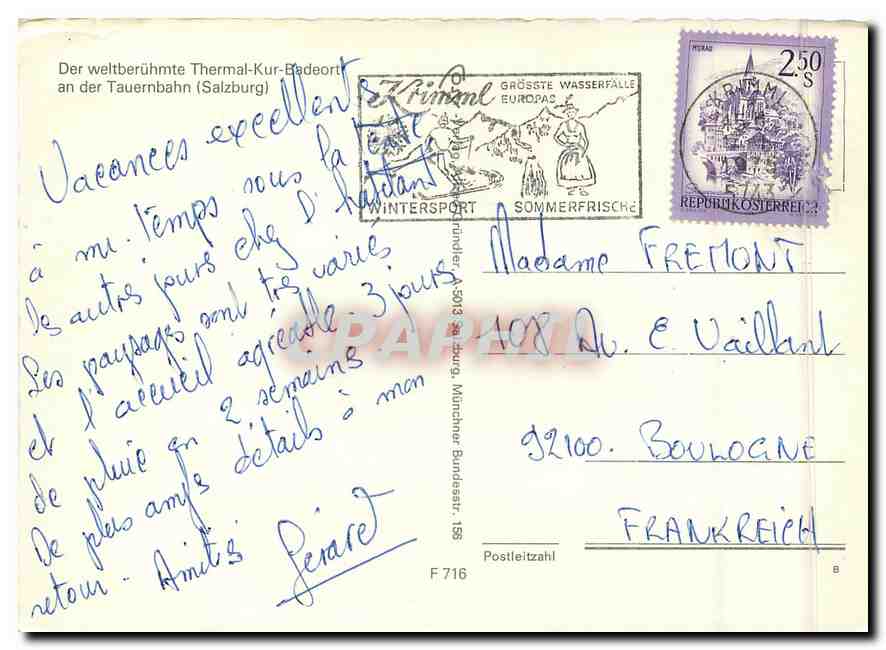 Der weltberühmte Thermal-Kur-Badeort
an der Tauernbahn (Salzburg)
Krimml
GRÖSSTE WASSERFÄLLE
EUROPAS
WINTERSPORT SOMMERFRISCHE
MURAU
2.50
S
KRIMML
5743
REPUBLIK ÖSTERREICH
Vacances excellentes
à mi-temps sous la tente
les autres jours chez l'habitant
Les paysages sont très variés
et l'accueil agréable. 3 jours
de pluie en 2 semaines
De plus amples détails à mon
retour - Amitiés Gérard
Gründler, A-5013 Salzburg, Münchner Bundesstr. 156
Madame FREMONT
108 Av. E. Vaillant
92100. BOULOGNE
FRANKREICH
Postleitzahl
F 716
B
CPAPHIL